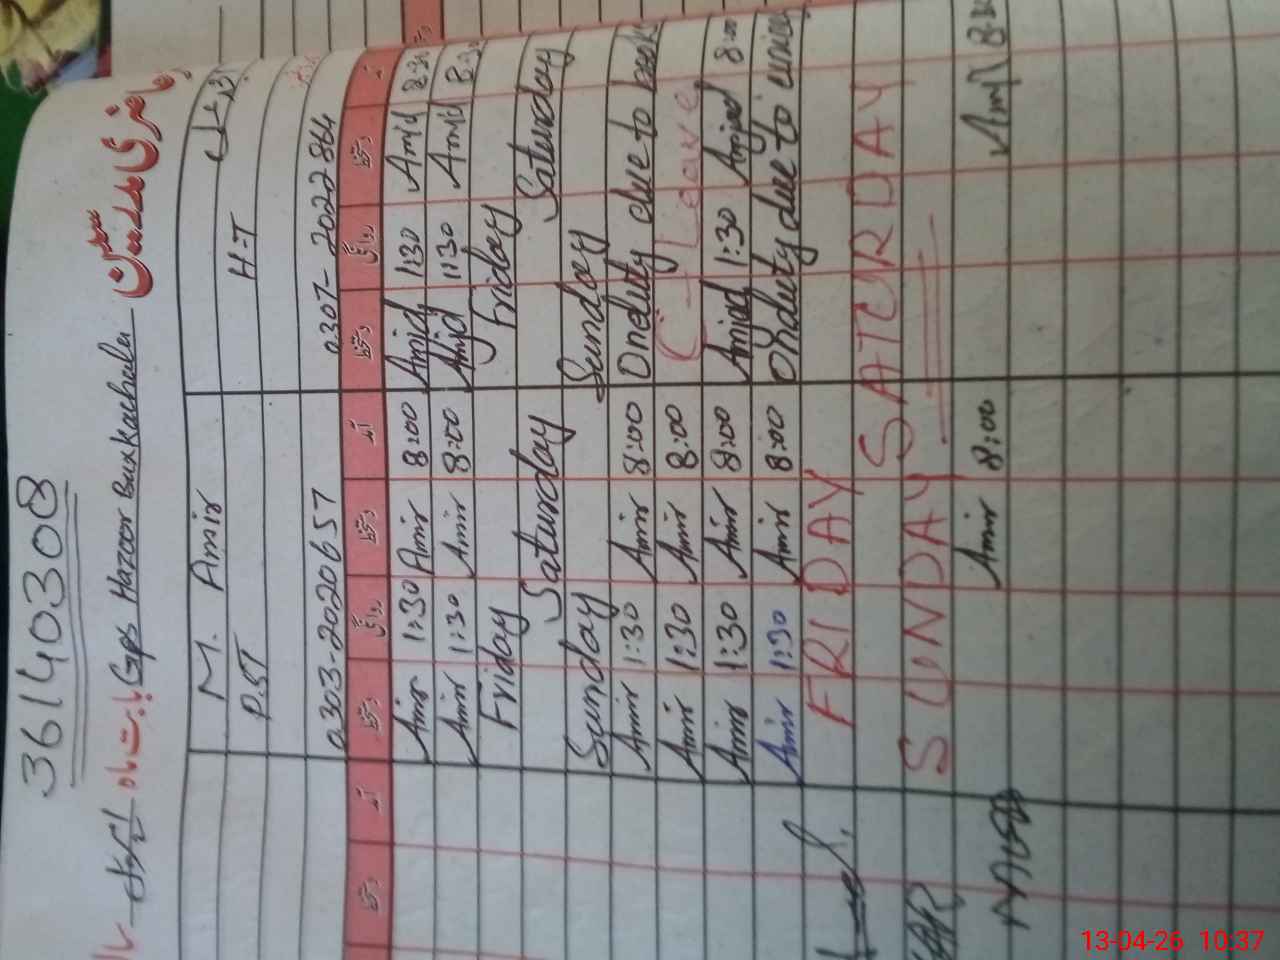 36140308
حاضری مدرسین سکول Gps Hazoor Bux Kachailu بابت ماہ اپریل
M. Amir
P.ST H-T
0303-2020657 0307-2022864
دستخط روانگی دستخط آمد دستخط روانگی دستخط آمد
Amir 1:30 Amir 8:00 Amjd 1:30 Amjd 8:30
Amir 1:30 Amir 8:00 Amjd 1:30 Amjd 8:30
Friday Friday
Saturday Saturday
Sunday Sunday
Amir 1:30 Amir 8:00 On duty due to book
Amir 1:30 Amir 8:00 C-Leave
Amir 1:30 Amir 8:00 Amjad 1:30 Amjad 8:00
Amir 1:30 Amir 8:00 On duty due to
FRIDAY
SATURDAY
SUNDAY
Amir 8:00 Amjd
13-04-26 10:37